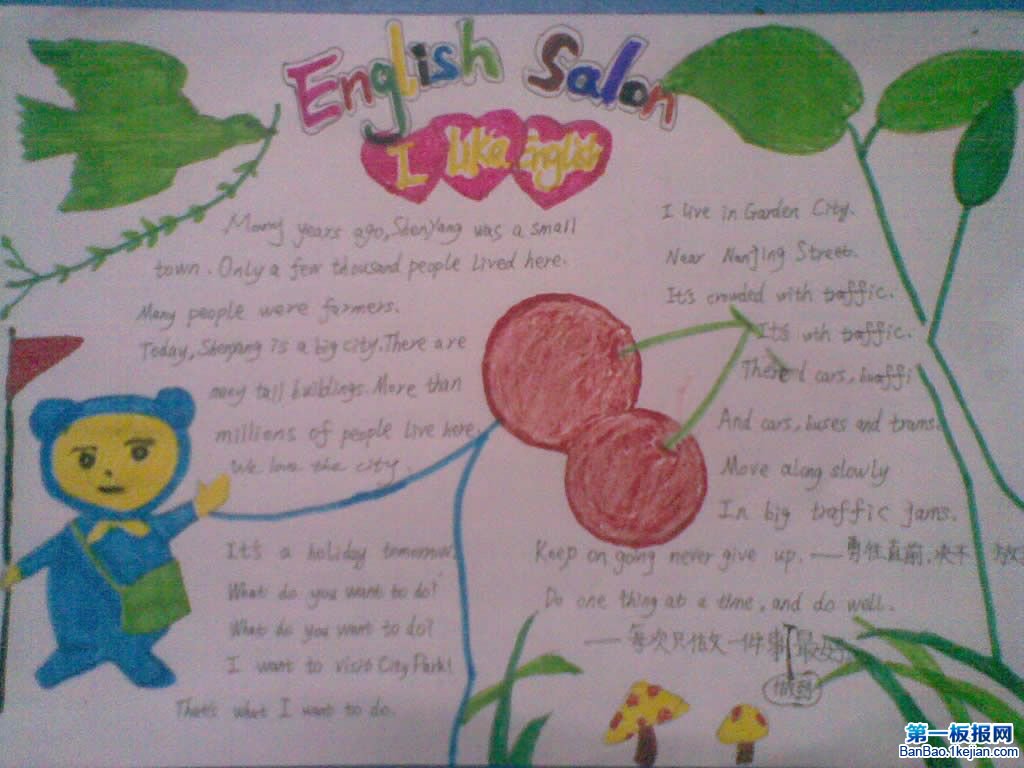 English Salon
I like English
Many years ago, ShenYang was a small
town. Only a few thousand people lived here.
Many people were farmers.
Today, Shenyang is a big city. There are
many tall buildings. More than
millions of people live here.
We love the city.
It's a holiday tomorrow.
What do you want to do?
What do you want to do?
I want to visit City Park!
That's what I want to do.
I live in Garden City.
Near Nanjing Street.
It's crowded with traffic.
It's with traffic.
cars,
And cars, buses and trams.
Move along slowly
In big traffic jams.
Keep on going never give up. ——勇往直前,决不 放
Do one thing at a time, and do well.
——每次只做一件事,最好
做到
第一板报网
BanBao.1kejian.com